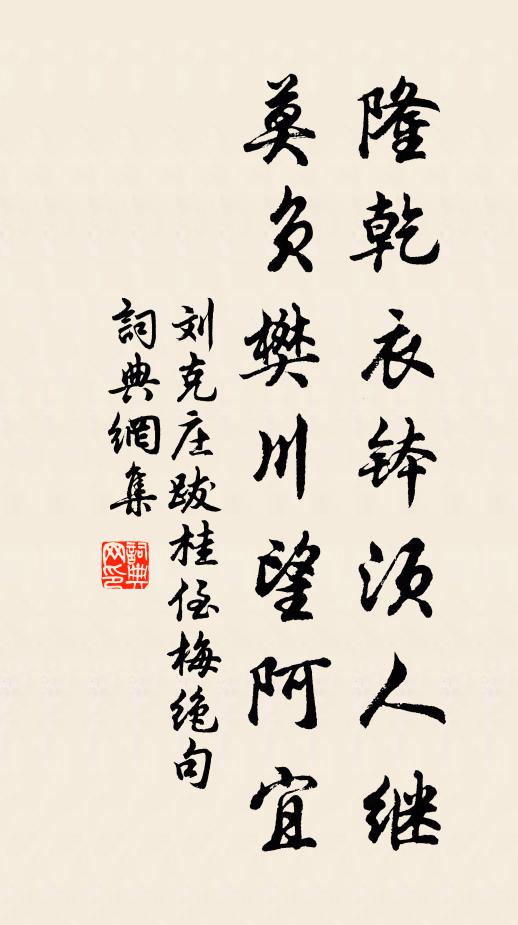 隆乾衣钵须人继
莫负樊川望阿宜
刘克庄跋桂侄梅绝句
詞典網集
詞典网印